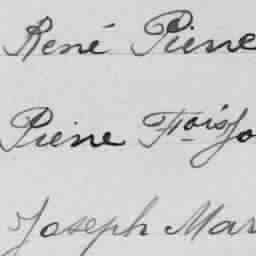 René Pierre
Pierre Fois Jo
Joseph Mar